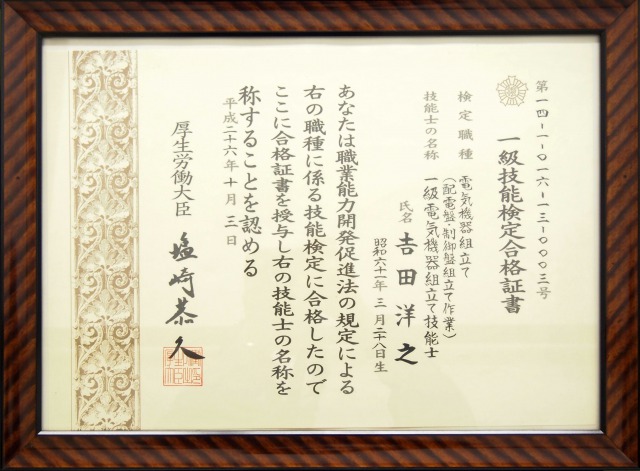 第一四-一-〇一六-一三-〇〇〇三号
一級技能検定合格証書
検定職種 電気機器組立て
(配電盤・制御盤組立て作業)
技能士の名称 一級電気機器組立て技能士
氏名 吉田洋之
昭和六十一年三月二十八日生
あなたは職業能力開発促進法の規定による
右の職種に係る技能検定に合格したので
ここに合格証書を授与し右の技能士の名称を
称することを認める
平成二十六年十月三日
厚生労働大臣 塩崎恭久